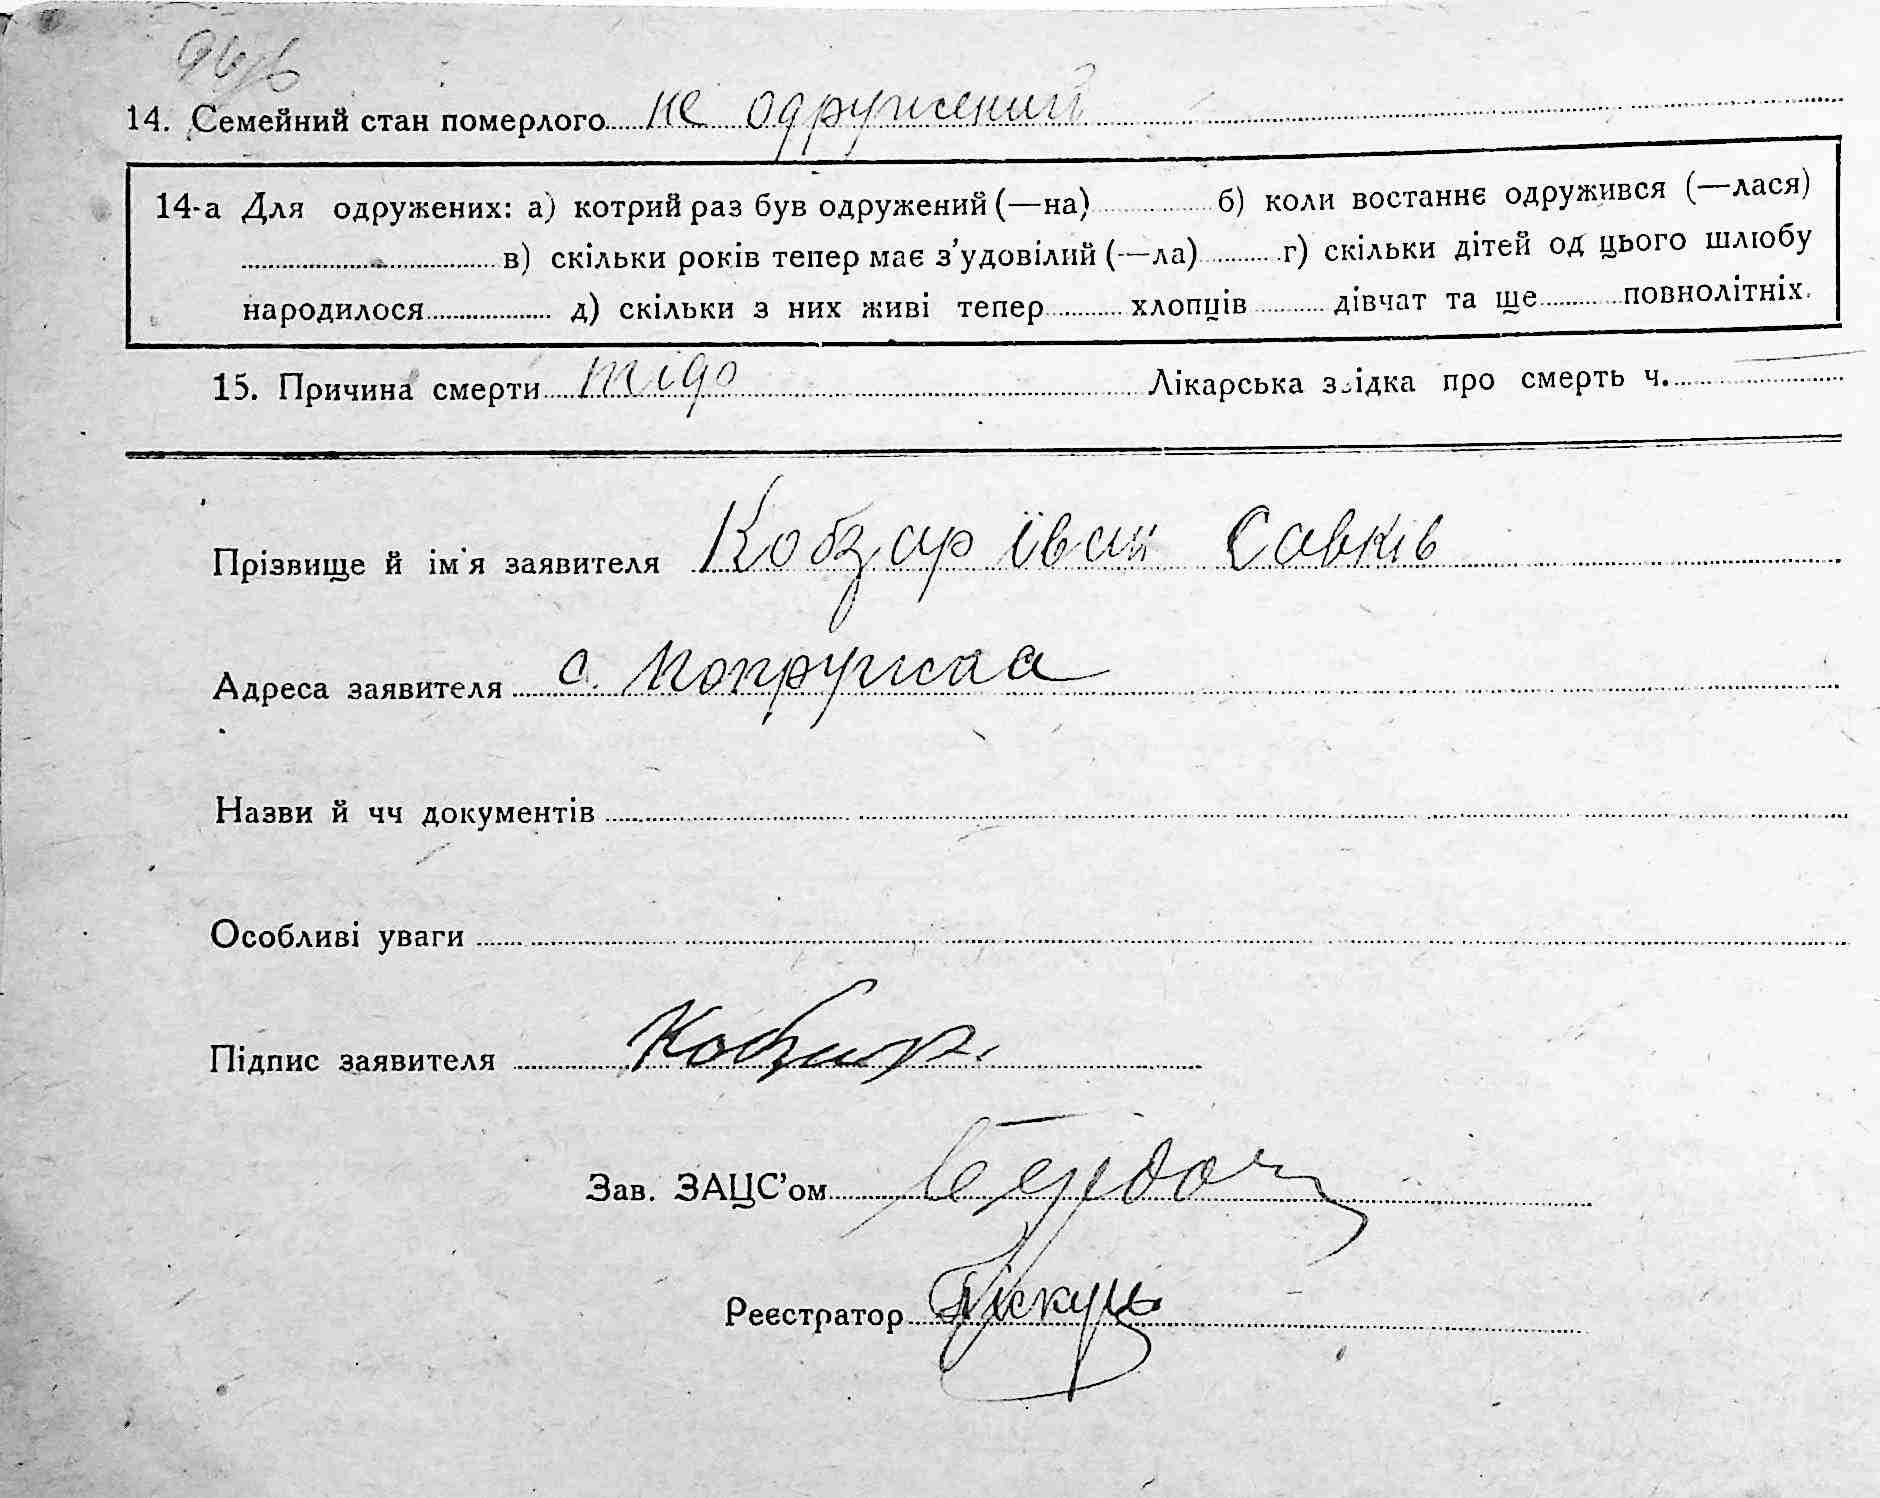 14. Семейний стан померлого не одружений
14-а Для одружених: а) котрий раз був одружений (—на) б) коли востаннє одружився (—лася)
в) скільки років тепер має з’удовілий (—ла) г) скільки дітей од цього шлюбу
народилося д) скільки з них живі тепер хлопців дівчат та ще повнолітніх.
15. Причина смерти Лікарська звідка про смерть ч.
Прізвище й ім’я заявителя Кобзар Іван Савків
Адреса заявителя с. Попружна
Назви й чч документів
Особливі уваги
Підпис заявителя Кобзар.
Зав. ЗАЦС’ом
Реєстратор